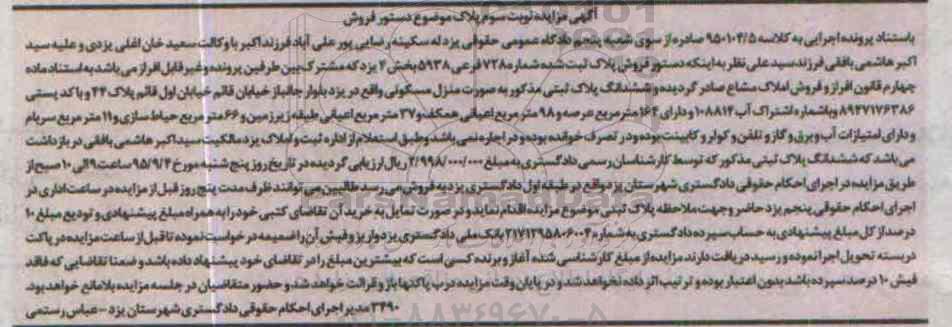 آگهی مزایده نوبت سوم پلاک موضوع دستور فروش
باستناد پرونده اجرایی به کلاسه ۹۵۰۱۰۴/۵ صادره از سوی شعبه پنجم دادگاه عمومی حقوقی یزد له سکینه رضایی پور علی آباد فرزند اکبر با وکالت سعید خان اغلی یزدی و علیه سید
اکبر هاشمی بافقی فرزند سید علی نظر به اینکه دستور فروش پلاک ثبت شده شماره ۷۲۸ فرعی ۵۹۳۸ بخش ۴ یزد که مشترک بین طرفین پرونده و غیر قابل افراز می باشد به استناد ماده
چهارم قانون افراز و فروش املاک مشاع صادر گردیده و ششدانگ پلاک ثبتی مذکور به صورت منزل مسکونی واقع در یزد بلوار جانباز خیابان قائم خیابان اول قائم پلاک ۴۴ و با کد پستی
۸۹۴۷۱۷۶۳۸۶ و باشماره اشتراک آب ۱۰۸۸۱۴ و دارای ۱۶۴ متر مربع عرصه و ۹۸ متر مربع اعیانی همکف و ۳۷ متر مربع اعیانی طبقه زیرزمین و ۶۶ متر مربع حیاط سازی و ۱۱ متر مربع سرپام
و دارای امتیازات آب و برق و گاز و تلفن و کولر و کابینت بوده و در تصرف خوانده بوده و در اجاره نمی باشد و طبق استعلام از اداره ثبت و املاک یزد مالکیت سید اکبر هاشمی بافقی در بازداشت
می باشد که ششدانگ پلاک ثبتی مذکور که توسط کارشناسان رسمی دادگستری به مبلغ ۲/۹۹۸/۰۰۰/۰۰۰ ریال ارزیابی گردیده در تاریخ روز پنج شنبه مورخ ۹۵/۹/۴ ساعت ۹ الی ۱۰ صبح از
طریق مزایده در اجرای احکام حقوقی دادگستری شهرستان یزد واقع در طبقه اول دادگستری یزد به فروش می رسد طالبین می توانند ظرف مدت پنج روز قبل از مزایده در ساعت اداری در
اجرای احکام حقوقی پنجم یزد حاضر و جهت ملاحظه پلاک ثبتی موضوع مزایده اقدام نماید و در صورت تمایل به خرید آن تقاضای کتبی خود را به همراه مبلغ پیشنهادی و تودیع مبلغ ۱۰
درصد از کل مبلغ پیشنهادی به حساب سپرده دادگستری به شماره ۲۱۷۱۲۹۵۸۰۶۰۰۴ بانک ملی دادگستری یزد واریز و فیش آن را ضمیمه در خواست نموده تا قبل از ساعت مزایده در پاکت
در بسته تحویل اجرا نموده و رسید دریافت دارند مزایده از مبلغ کارشناسی شده آغاز و برنده کسی است که بیشترین مبلغ را در تقاضای خود پیشنهاد داده باشد و ضمنا تقاضایی که فاقد
فیش ۱۰ درصد سپرده باشد بدون اعتبار بوده و ترتیب اثر داده نخواهد شد و در پایان وقت مزایده درب پاکتها باز و قرائت خواهد شد و حضور متقاضیان در جلسه مزایده بلامانع خواهد بود.
۳۴۹۰ مدیر اجرای احکام حقوقی دادگستری شهرستان یزد - عباس رستمی